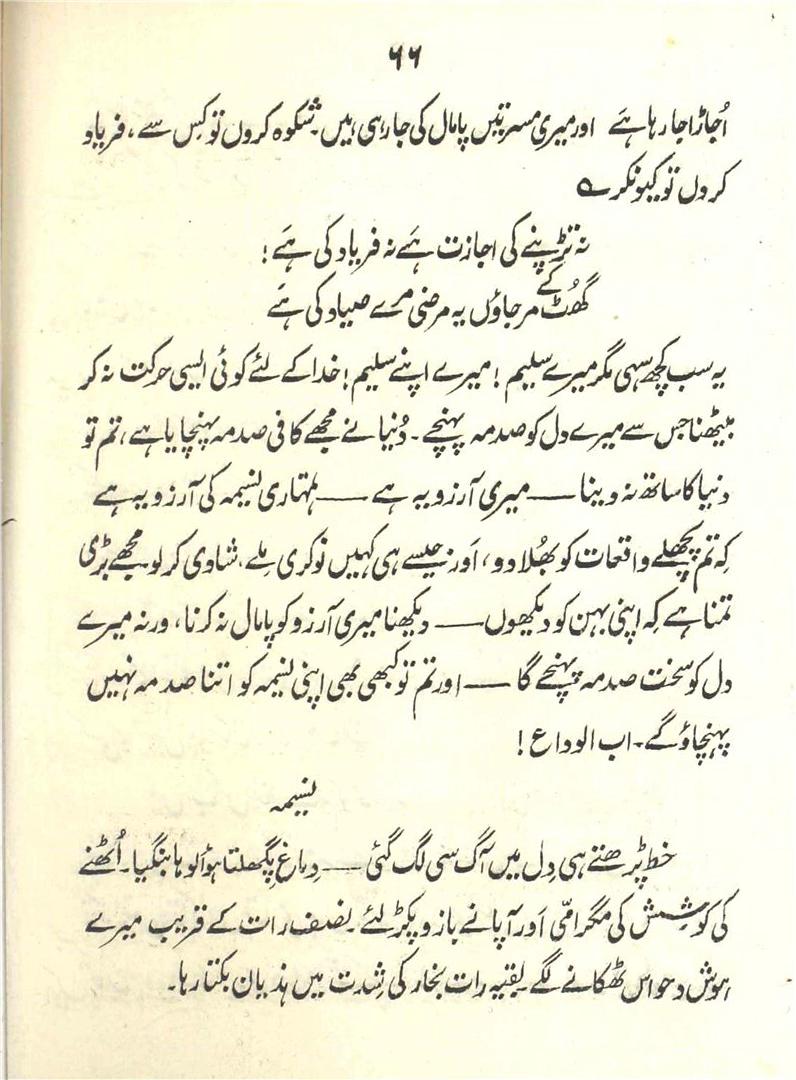 ۶۶
اُجاڑا جا رہا ہَے اور میری مسرتیں پامال کی جا رہی ہیں۔ شکوہ کروں تو کِس سے، فریاد
کروں تو کیونکر ؎
نہ تڑپنے کی اجازت ہَے نہ فریاد کی ہَے!
گھُٹ کے مر جاؤں یہ مرضی مرے صیاد کی ہَے
یہ سب کچھ سہی مگر میرے سلیم! میرے اپنے سلیم! خدا کے لئے کوئی ایسی حرکت نہ کر
بیٹھنا جس سے میرے دل کو صدمہ پہنچے۔ دُنیا نے مجھے کافی صدمہ پہنچایا ہے، تم تو
دنیا کا ساتھ نہ دینا — میری آرزو یہ ہے — تمہاری نسیمہ کی آرزو یہ ہے
کہ تم پچھلے واقعات کو بھُلا دو، اَور جیسے ہی کہیں نوکری ملے، شادی کر لو۔ مجھے بڑی
تمنا ہے کہ اپنی بہن کو دیکھوں — دیکھنا میری آرزو کو پامال نہ کرنا، ورنہ میرے
دل کو سخت صدمہ پہنچے گا — اور تم تو کبھی بھی اپنی نسیمہ کو اتنا صدمہ نہیں
پہنچاؤ گے۔ اب الوداع!
نسیمہ
خط پڑھتے ہی دِل میں آگ سی لگ گئی — دِماغ پگھلتا ہوُا لوہا بنگیا۔ اُٹھنے
کی کوشِش کی مگر امّی اَور آپا نے بازو پکڑ لئے۔ نصف رات کے قریب میرے
ہوش و حواس ٹھکانے لگے۔ بقیہ رات بخار کی شِدت میں ہذیان بکتا رہا۔